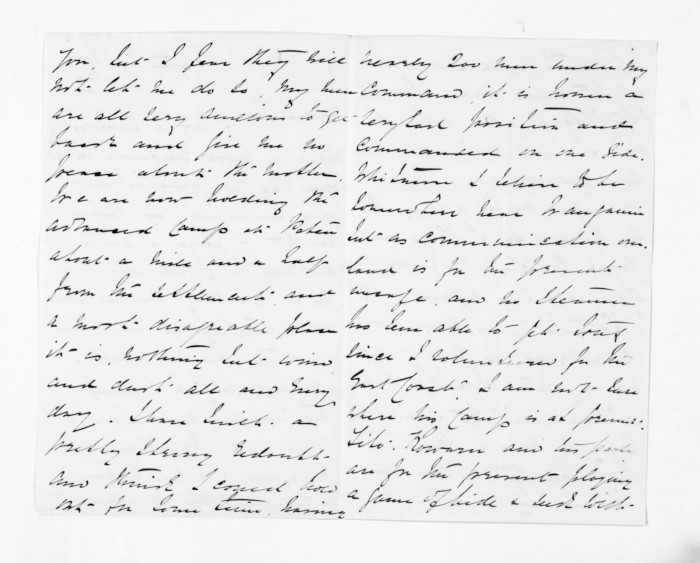 you, but I fear they will
not let me do so, my men
are all very anxious to get
back and give me no
peace about the matter.
We are now holding the
advanced Camp at Patea
about a mile and a half
from the settlement and
a most disagreeable place
it is, nothing but wind
and dust all and every
day. I have built a
pretty strong redoubt
and think I could hold
out for some time, having
nearly 200 men under my
Command, it is however a
very bad position and
commanded on one side.
Whitmore I believe to be
somewhere near Wanganui
but as communication over-
land is for the present
unsafe, and no Steamer
has been able to get out
since I volunteered for the
East Coast, I am not sure
where his Camp is at present.
Tito Kowaru and his party
are for the present playing
a game of hide & seek with